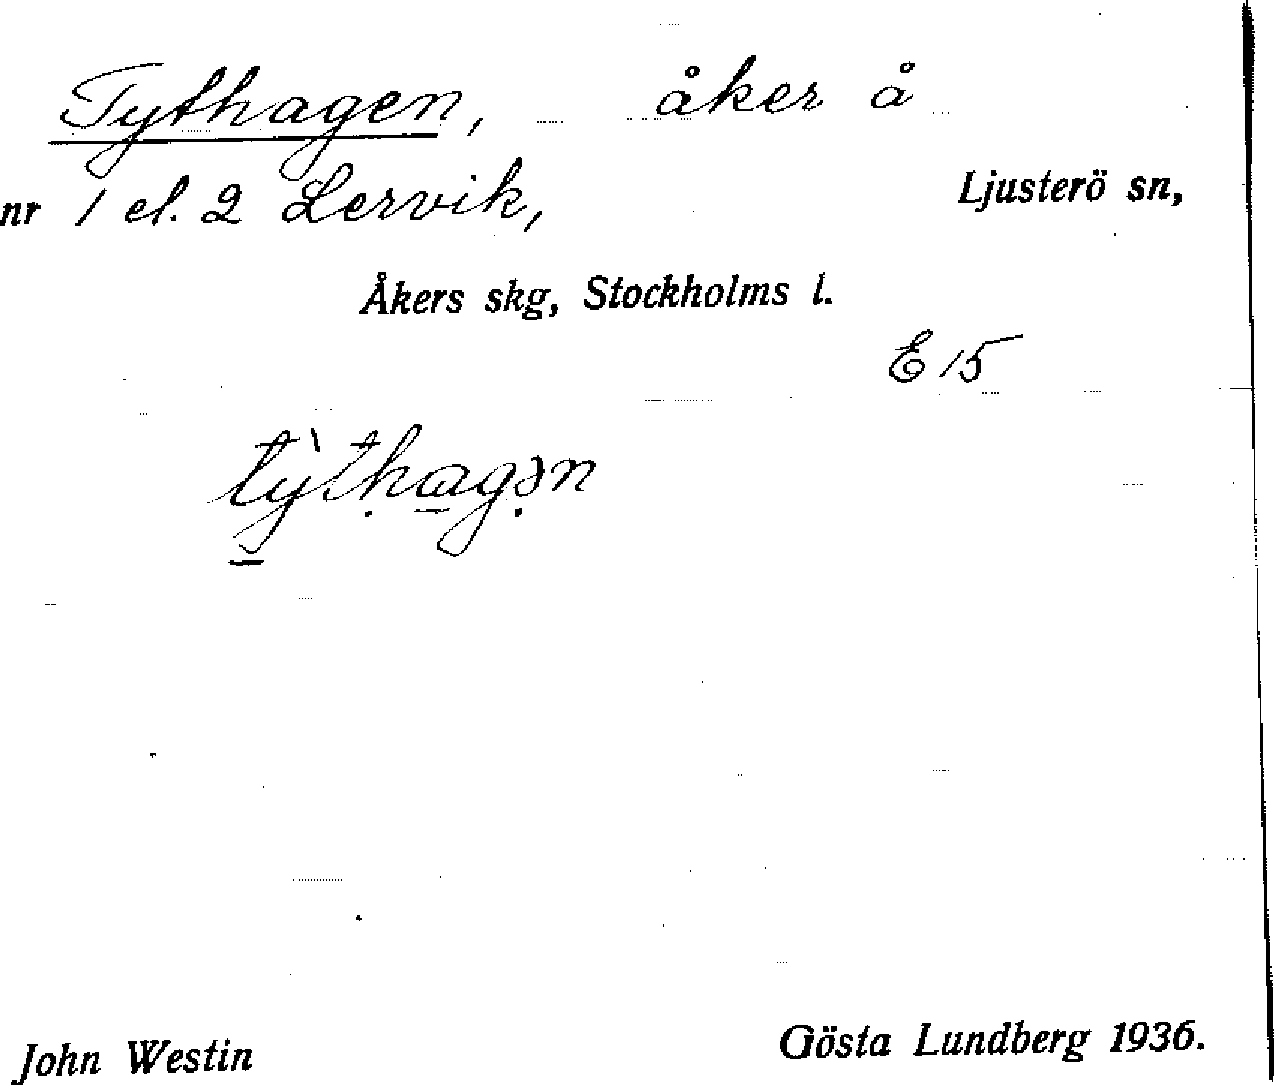 Tythagen, åker å
nr 1 el. 2 Lervik, Ljusterö sn,
Åkers skg, Stockholms l.
E 15
tỳthagən
John Westin Gösta Lundberg 1936.